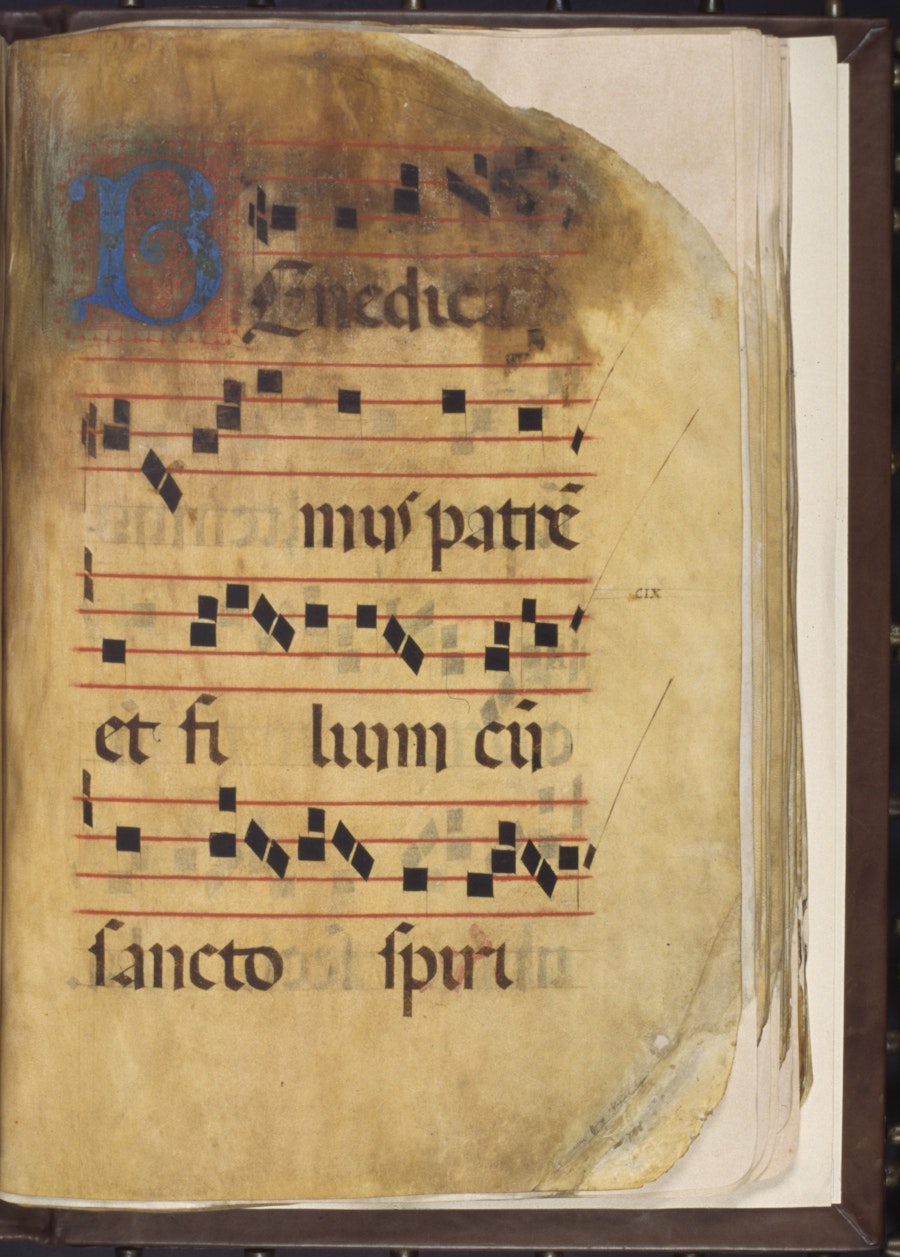 BEnedica
mus patrē
cix
et fi lium cū
sancto spiri